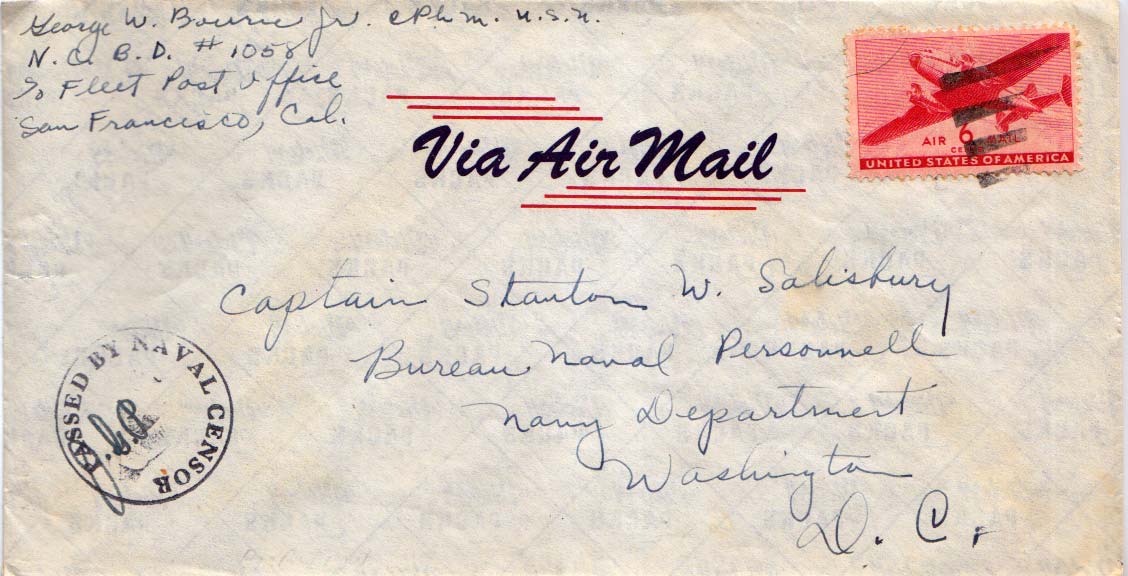 George W. Bourie Jr. CPhM. U.S.N.
N. O. B. D. # 1058
c/o Fleet Post Office
San Francisco, Cal.
Via Air Mail
AIR 6
UNITED STATES OF AMERICA
Captain Stanton W. Salisbury
Bureau Naval Personnell
Navy Department
Washington
D. C.
PASSED BY NAVAL CENSOR